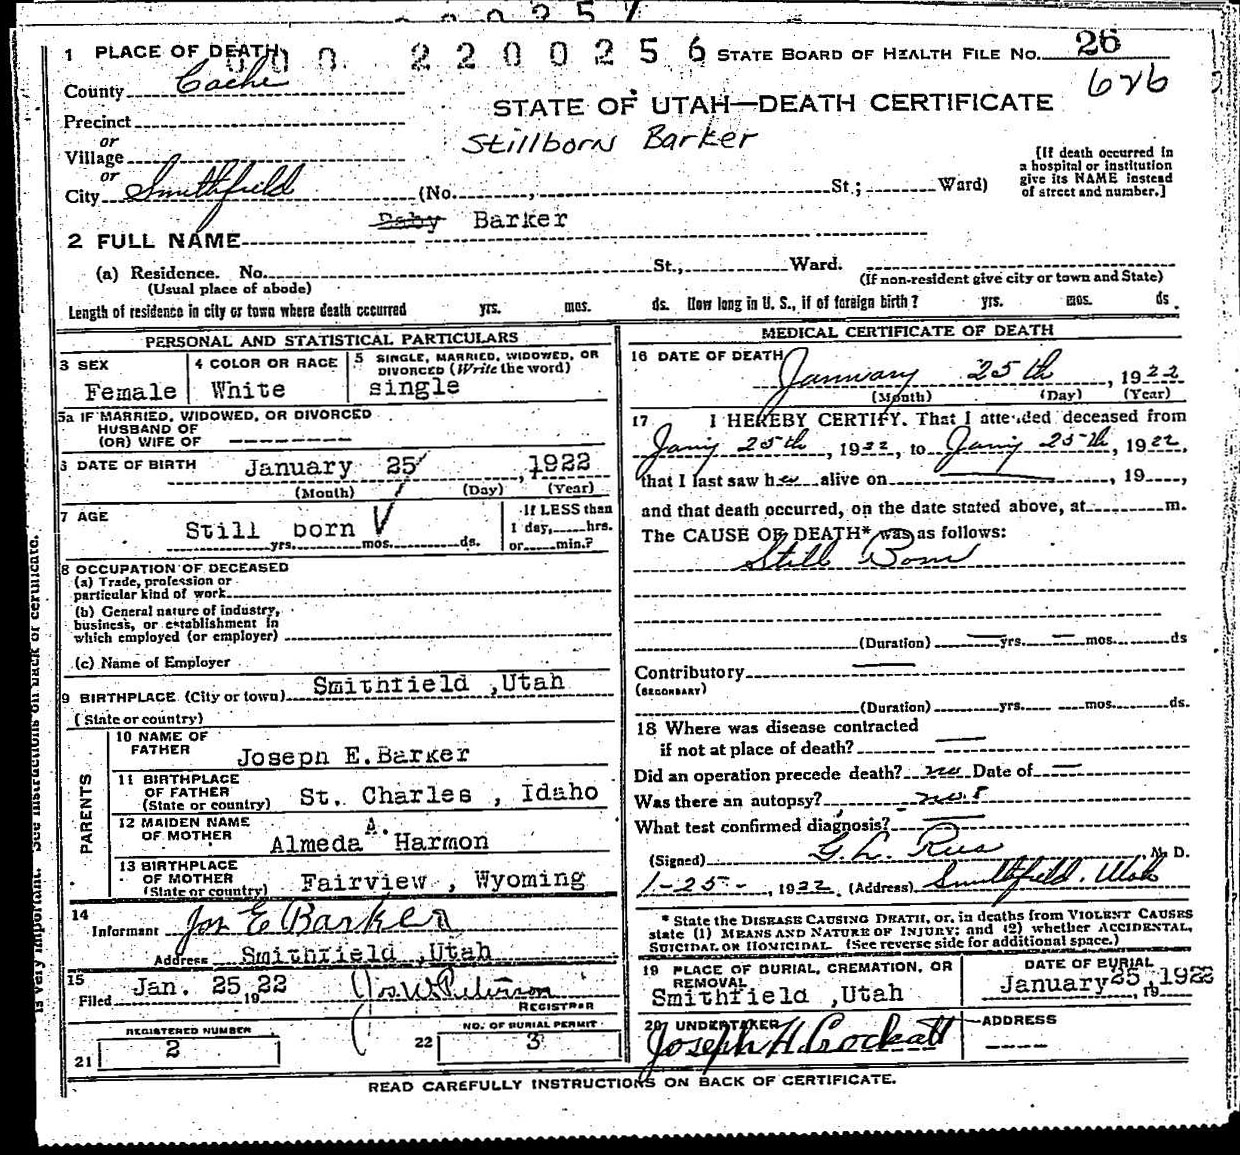 1 PLACE OF DEATH
000 2200256
STATE BOARD OF HEALTH FILE NO. 26
626
County Cache
STATE OF UTAH—DEATH CERTIFICATE
Precinct
or
Stillborn Barker
Village
or
City Smithfield (No. , St.; Ward)
[If death occurred in
a hospital or institution
give its NAME instead
of street and number.]
2 FULL NAME Baby Barker
(a) Residence. No. St., Ward.
(Usual place of abode) (If non-resident give city or town and State)
Length of residence in city or town where death occurred yrs. mos. ds. How long in U. S., if of foreign birth? yrs. mos. ds.
PERSONAL AND STATISTICAL PARTICULARS
3 SEX Female
4 COLOR OR RACE White
5 SINGLE, MARRIED, WIDOWED, OR
DIVORCED (Write the word)
single
5a IF MARRIED, WIDOWED, OR DIVORCED
HUSBAND OF
(OR) WIFE OF
6 DATE OF BIRTH January 25, 1922
(Month) (Day) (Year)
7 AGE Still born
yrs. mos. ds.
If LESS than
1 day, hrs.
or min.?
8 OCCUPATION OF DECEASED
(a) Trade, profession or
particular kind of work
(b) General nature of industry,
business, or establishment in
which employed (or employer)
(c) Name of Employer
9 BIRTHPLACE (City or town) Smithfield ,Utah
(State or country)
PARENTS
10 NAME OF
FATHER Joseph E. Barker
11 BIRTHPLACE
OF FATHER
(State or country) St. Charles , Idaho
12 MAIDEN NAME
OF MOTHER Almeda A. Harmon
13 BIRTHPLACE
OF MOTHER
(State or country) Fairview , Wyoming
14
Informant Jos E Barker
Address Smithfield ,Utah
15
Filed Jan. 25 22 19
REGISTRAR
REGISTERED NUMBER
21 2
NO. OF BURIAL PERMIT
22 3
MEDICAL CERTIFICATE OF DEATH
16 DATE OF DEATH
January 25th, 1922
(Month) (Day) (Year)
17 I HEREBY CERTIFY. That I attended deceased from
Jany 25th, 1922, to Jany 25th, 1922,
that I last saw her alive on , 19 ,
and that death occurred, on the date stated above, at m.
The CAUSE OF DEATH* was as follows:
Still Born
(Duration) yrs. mos. ds
Contributory
(SECONDARY)
(Duration) yrs. mos. ds.
18 Where was disease contracted
if not at place of death?
Did an operation precede death? no Date of
Was there an autopsy? no.
What test confirmed diagnosis?
(Signed) G. L. Rees M. D.
1-25-, 1922. (Address) Smithfield. Utah
* State the DISEASE CAUSING DEATH, or, in deaths from VIOLENT CAUSES
state (1) MEANS AND NATURE OF INJURY; and (2) whether ACCIDENTAL,
SUICIDAL OR HOMICIDAL. (See reverse side for additional space.)
19 PLACE OF BURIAL, CREMATION, OR
REMOVAL
Smithfield ,Utah
DATE OF BURIAL
January 25, 1922
19
20 UNDERTAKER
Joseph H. Crockatt
ADDRESS
READ CAREFULLY INSTRUCTIONS ON BACK OF CERTIFICATE.
is very important. See instructions on back of certificate.